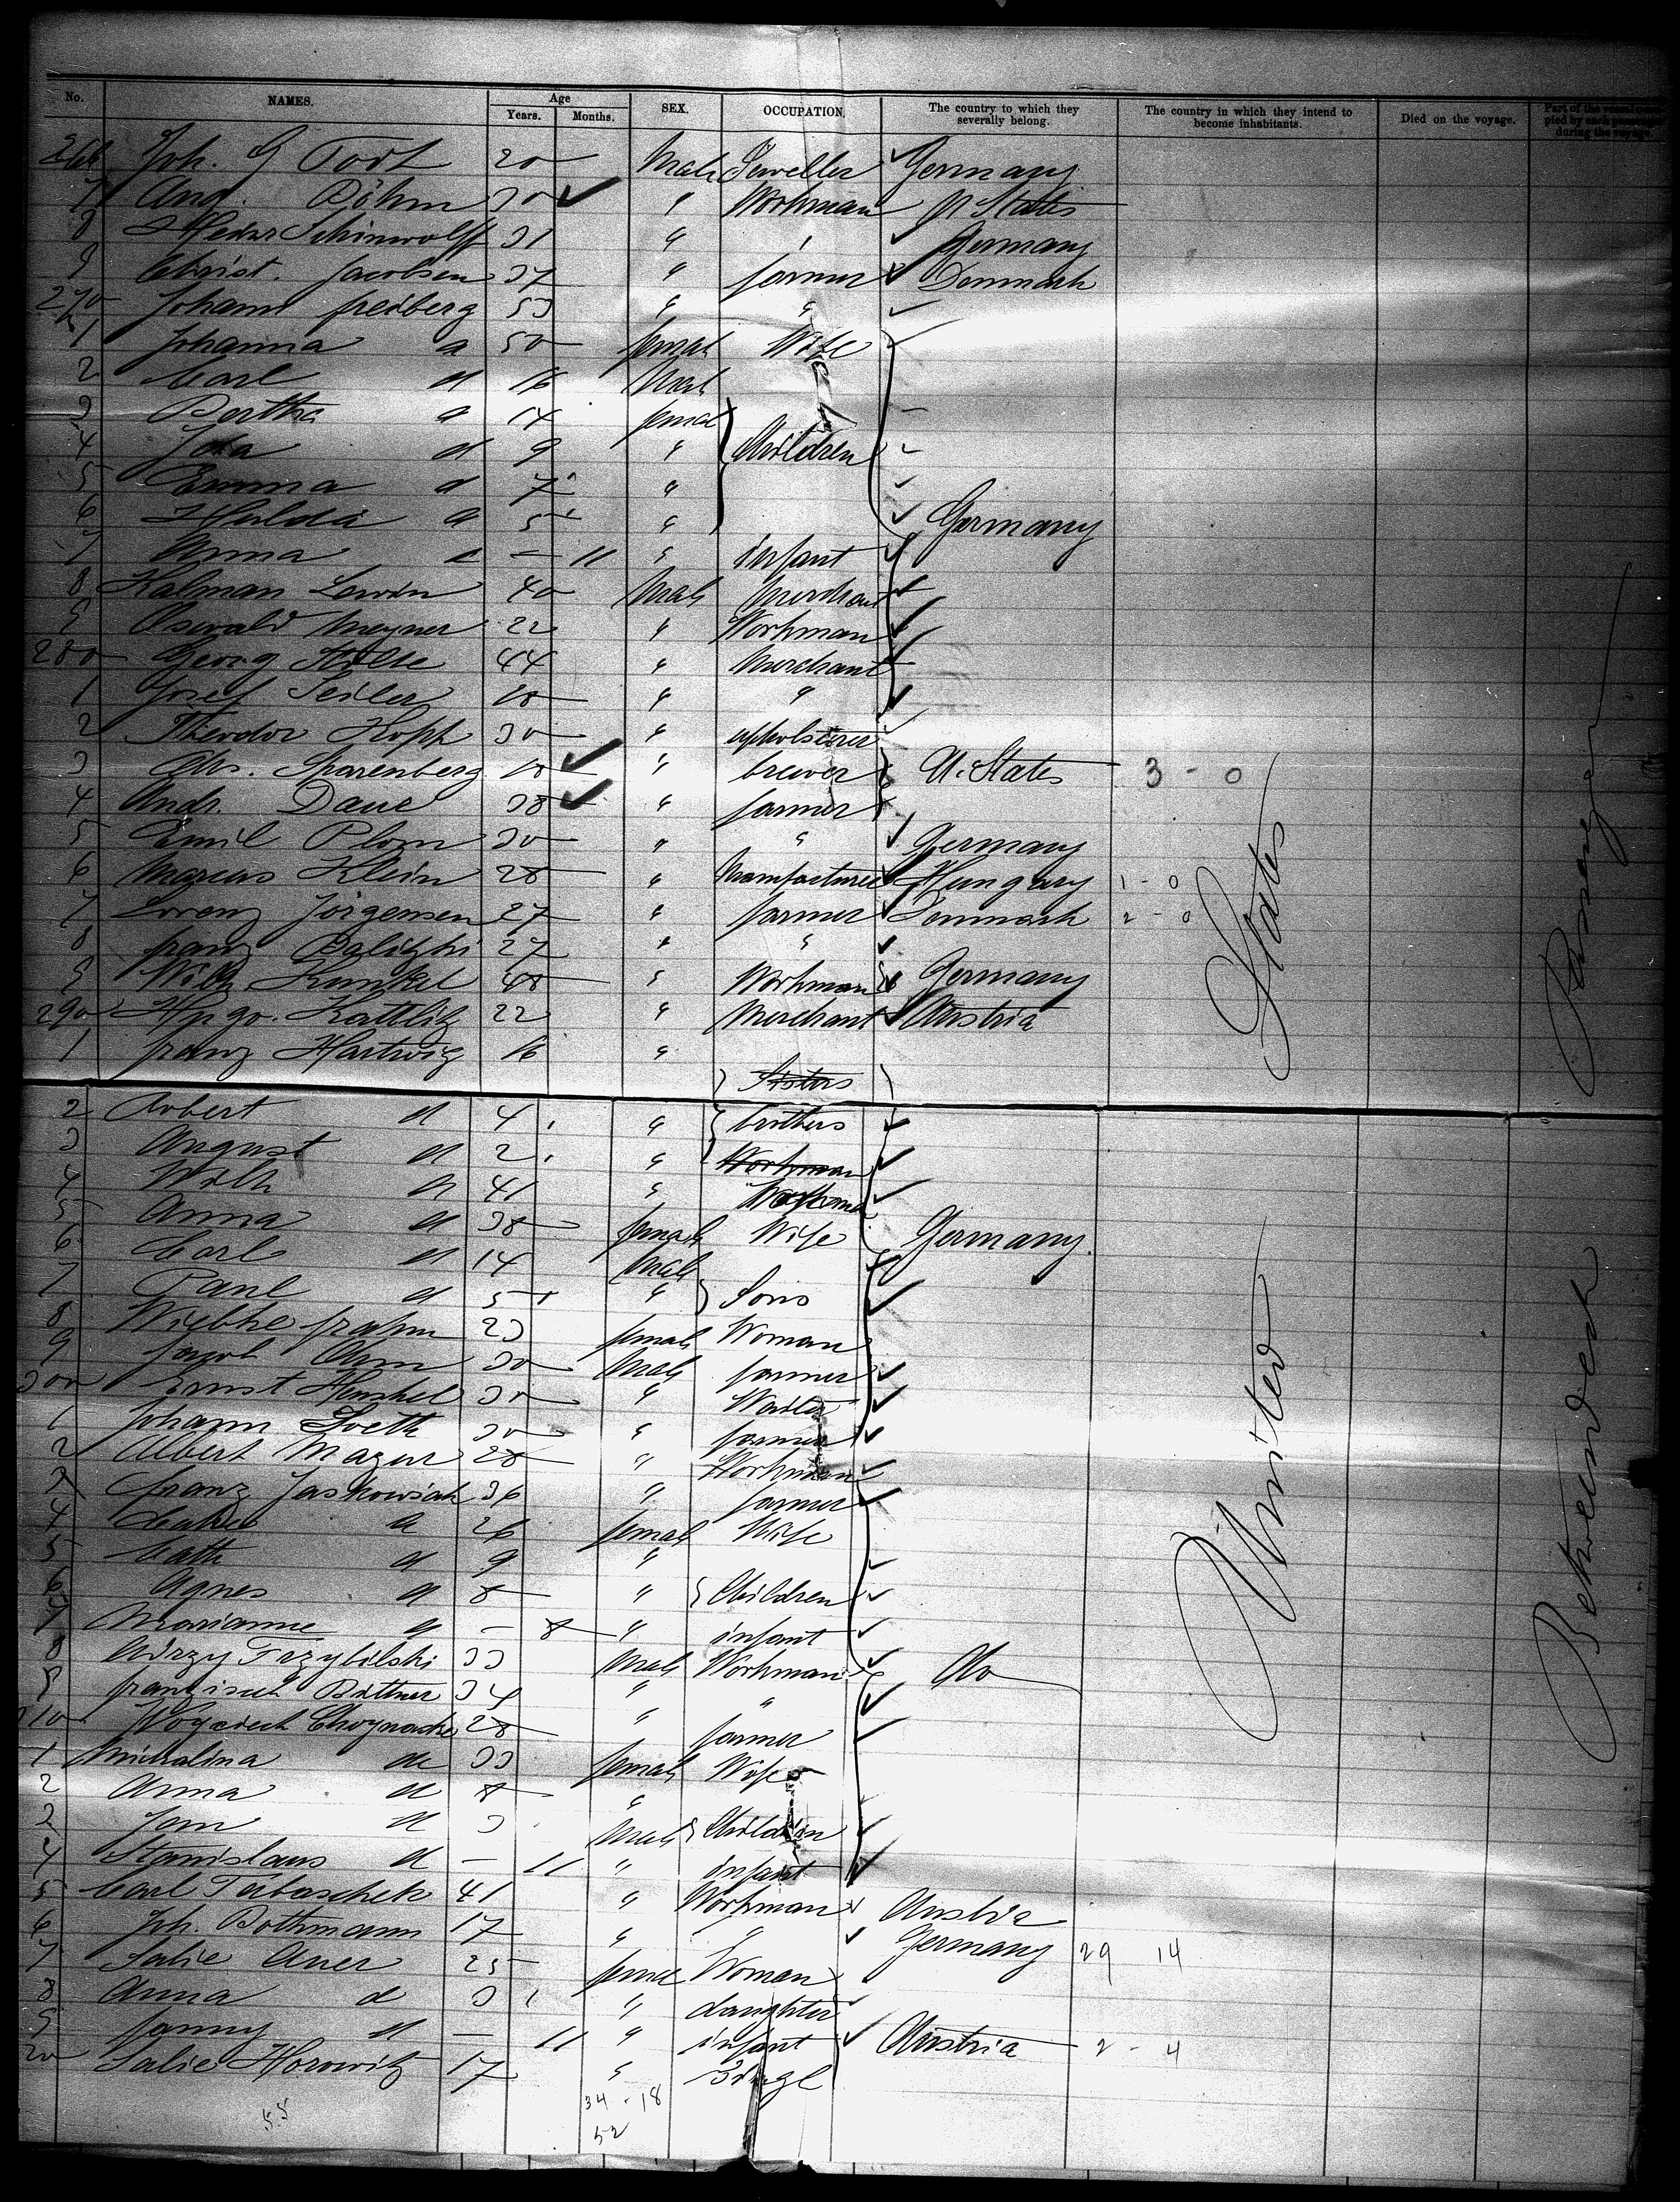 No. NAMES. Age Years. Months. SEX. OCCUPATION. The country to which they severally belong. The country in which they intend to become inhabitants. Died on the voyage. Part of the during the voyage.
266 Joh. G 20 Male Jeweller Germany
7 Aug. Böhm 30 " Workman States
8 31 " Germany
9 Christ. Jacobsen 37 " farmer Denmark
270 Johann freiberg 53 " "
1 Johanna d 50 female Wife
2 Carl d 16 Male
3 Bertha d 14 female
4 Ida d 9 " Children
5 Emma d 7 "
6 Hulda d 5 " Germany
7 Anna d - 11 " infant
8 Kalman Lewin 40 Male Merchant
9 Oswald Meyner 22 " Workman
280 Georg Stolte 44 " Merchant
1 Josef Seiler 18 " "
2 Theodor Kopp 30 " upholsterer
3 Sparenberg 18 " brewer U. States 3 - 0
4 Andr. Daue 38 " farmer
5 Emil Plom 30 " " Germany
6 Marcus Klein 28 " Manufacturer Hungary 1 - 0
7 Lorenz Jörgensen 27 " farmer Denmark 2 - 0
8 franz Balitzki 27 " "
9 Wilh. Kunkel 48 " Workman Germany
290 Hugo Kattlitz 22 " Merchant Austria
1 franz Hartwig 16 "
Sisters
2 Robert d 4 " brothers
3 August d 2 " Workman
4 Wilh d 41 " Workman
5 Anna d 38 female Wife Germany.
6 Carl d 14 Male
7 Paul d 5 " Sons
8 Wiebke frahm 23 female Woman
9 Jacob 30 Male farmer
300 Ernst Henschel 30 " Waiter
1 Johann 30 " farmer
2 Albert Mazur 28 " Workman
3 franz Jaskowiak 36 " farmer
4 d 26 female Wife
5 Cath d 9 "
6 Agnes d 8 " Children
7 Marianne d - 8 " infant
8 Trzybilski 33 Male Workman do
9 Bittner 34 " "
310 28 " farmer
1 Michalina do 33 female Wife
2 Anna d 8 "
3 Jan d 3 Male Children
4 Stanislaus d - 11 " infant
5 Carl Tabaschek 41 " Workman Austria
6 Joh. Bothmann 17 " " Germany 29 14
7 Salie Auer 25 female Woman
8 Anna d 3 " daughter
9 fanny d - 11 " infant Austria 2 - 4
20 Salie Horowitz 17 "
34 - 18
55
52
United States
Betweendeck Passenger